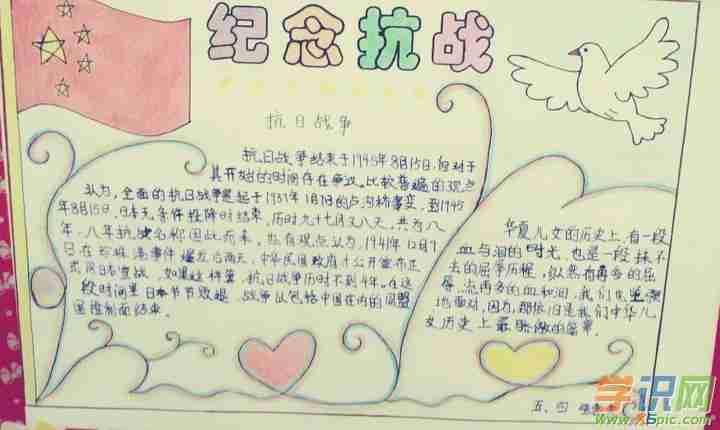 纪念抗战
抗日战争
抗日战争结束于1945年8月15日.但对于
其开始的时间存在争议。比较普遍的观点
认为，全面的抗日战争是起于1937年7月7日的卢沟桥事变，到1945
年8月15日，日本无条件投降时结束，历时九十七月又八天，共为八
年，八年抗战名称因此而来。也有观点认为，1941年12月9
日在珍珠港事件爆发后两天，中华民国政府才公开宣布正
式对日本宣战，如果这样算，抗日战争历时不到4年。在这
段时间里日本节节败退，战争以包括中国在内的同盟
国控制而结束。
华夏儿女的历史上，有一段
血与泪的时光，也是一段抹不
去的屈辱历程，纵然有再多的屈
辱，流再多的血和泪，我们也坚强
地面对，因为，那依旧是我们中华儿
女历史上最骄傲的篇章.
五、四
学识网
www.xspic.com